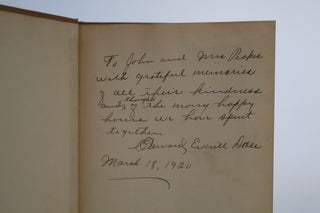 To John and Mrs
with grateful memories
of all their kindness
and, though, of the many happy
hours we have spent
together.
Edward Everett
March 18, 1920